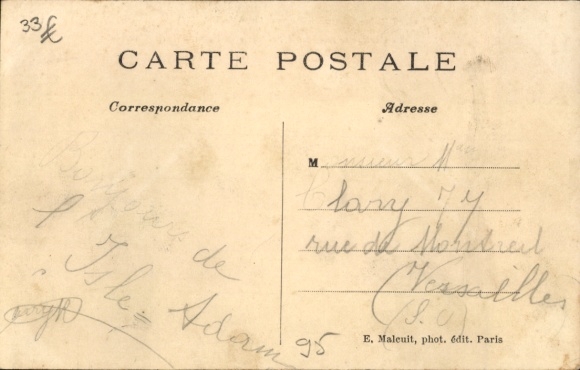 33
CARTE POSTALE
Correspondance
Adresse
de
Isle=Adam
95
M
Clary 77
rue de Montreuil
Versailles
(S. O)
E. Malcuit, phot. édit. Paris